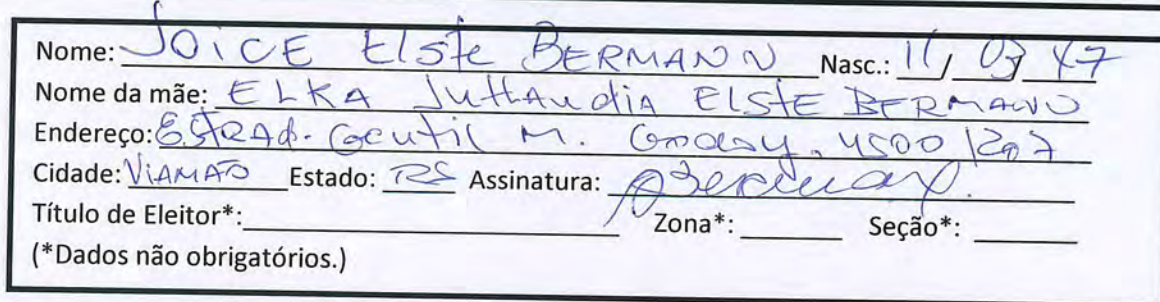 Nome: JOICE ElSte BERMANN Nasc.: 11/ 03/ 47
Nome da mãe: ELKA JuttAndiA ElStE BERMANN
Endereço: EStRAd. Gentil M. Godoy, 4500
Cidade: ViAMÃO Estado: RS Assinatura: JBermann
Título de Eleitor*: Zona*: Seção*:
(*Dados não obrigatórios.)